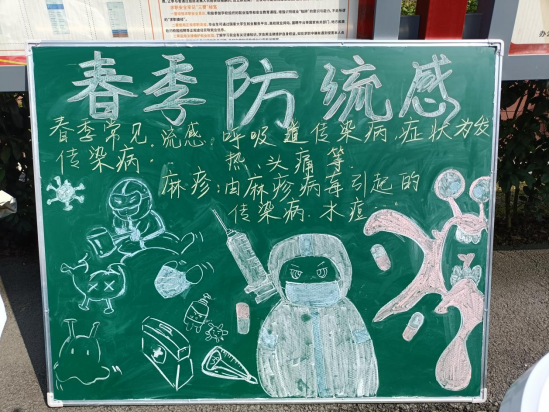 春季防流感
春季常见 流感:呼吸道传染病,症状为发
传染病: 热、头痛等.
麻疹:由麻疹病毒引起的
传染病.水痘...